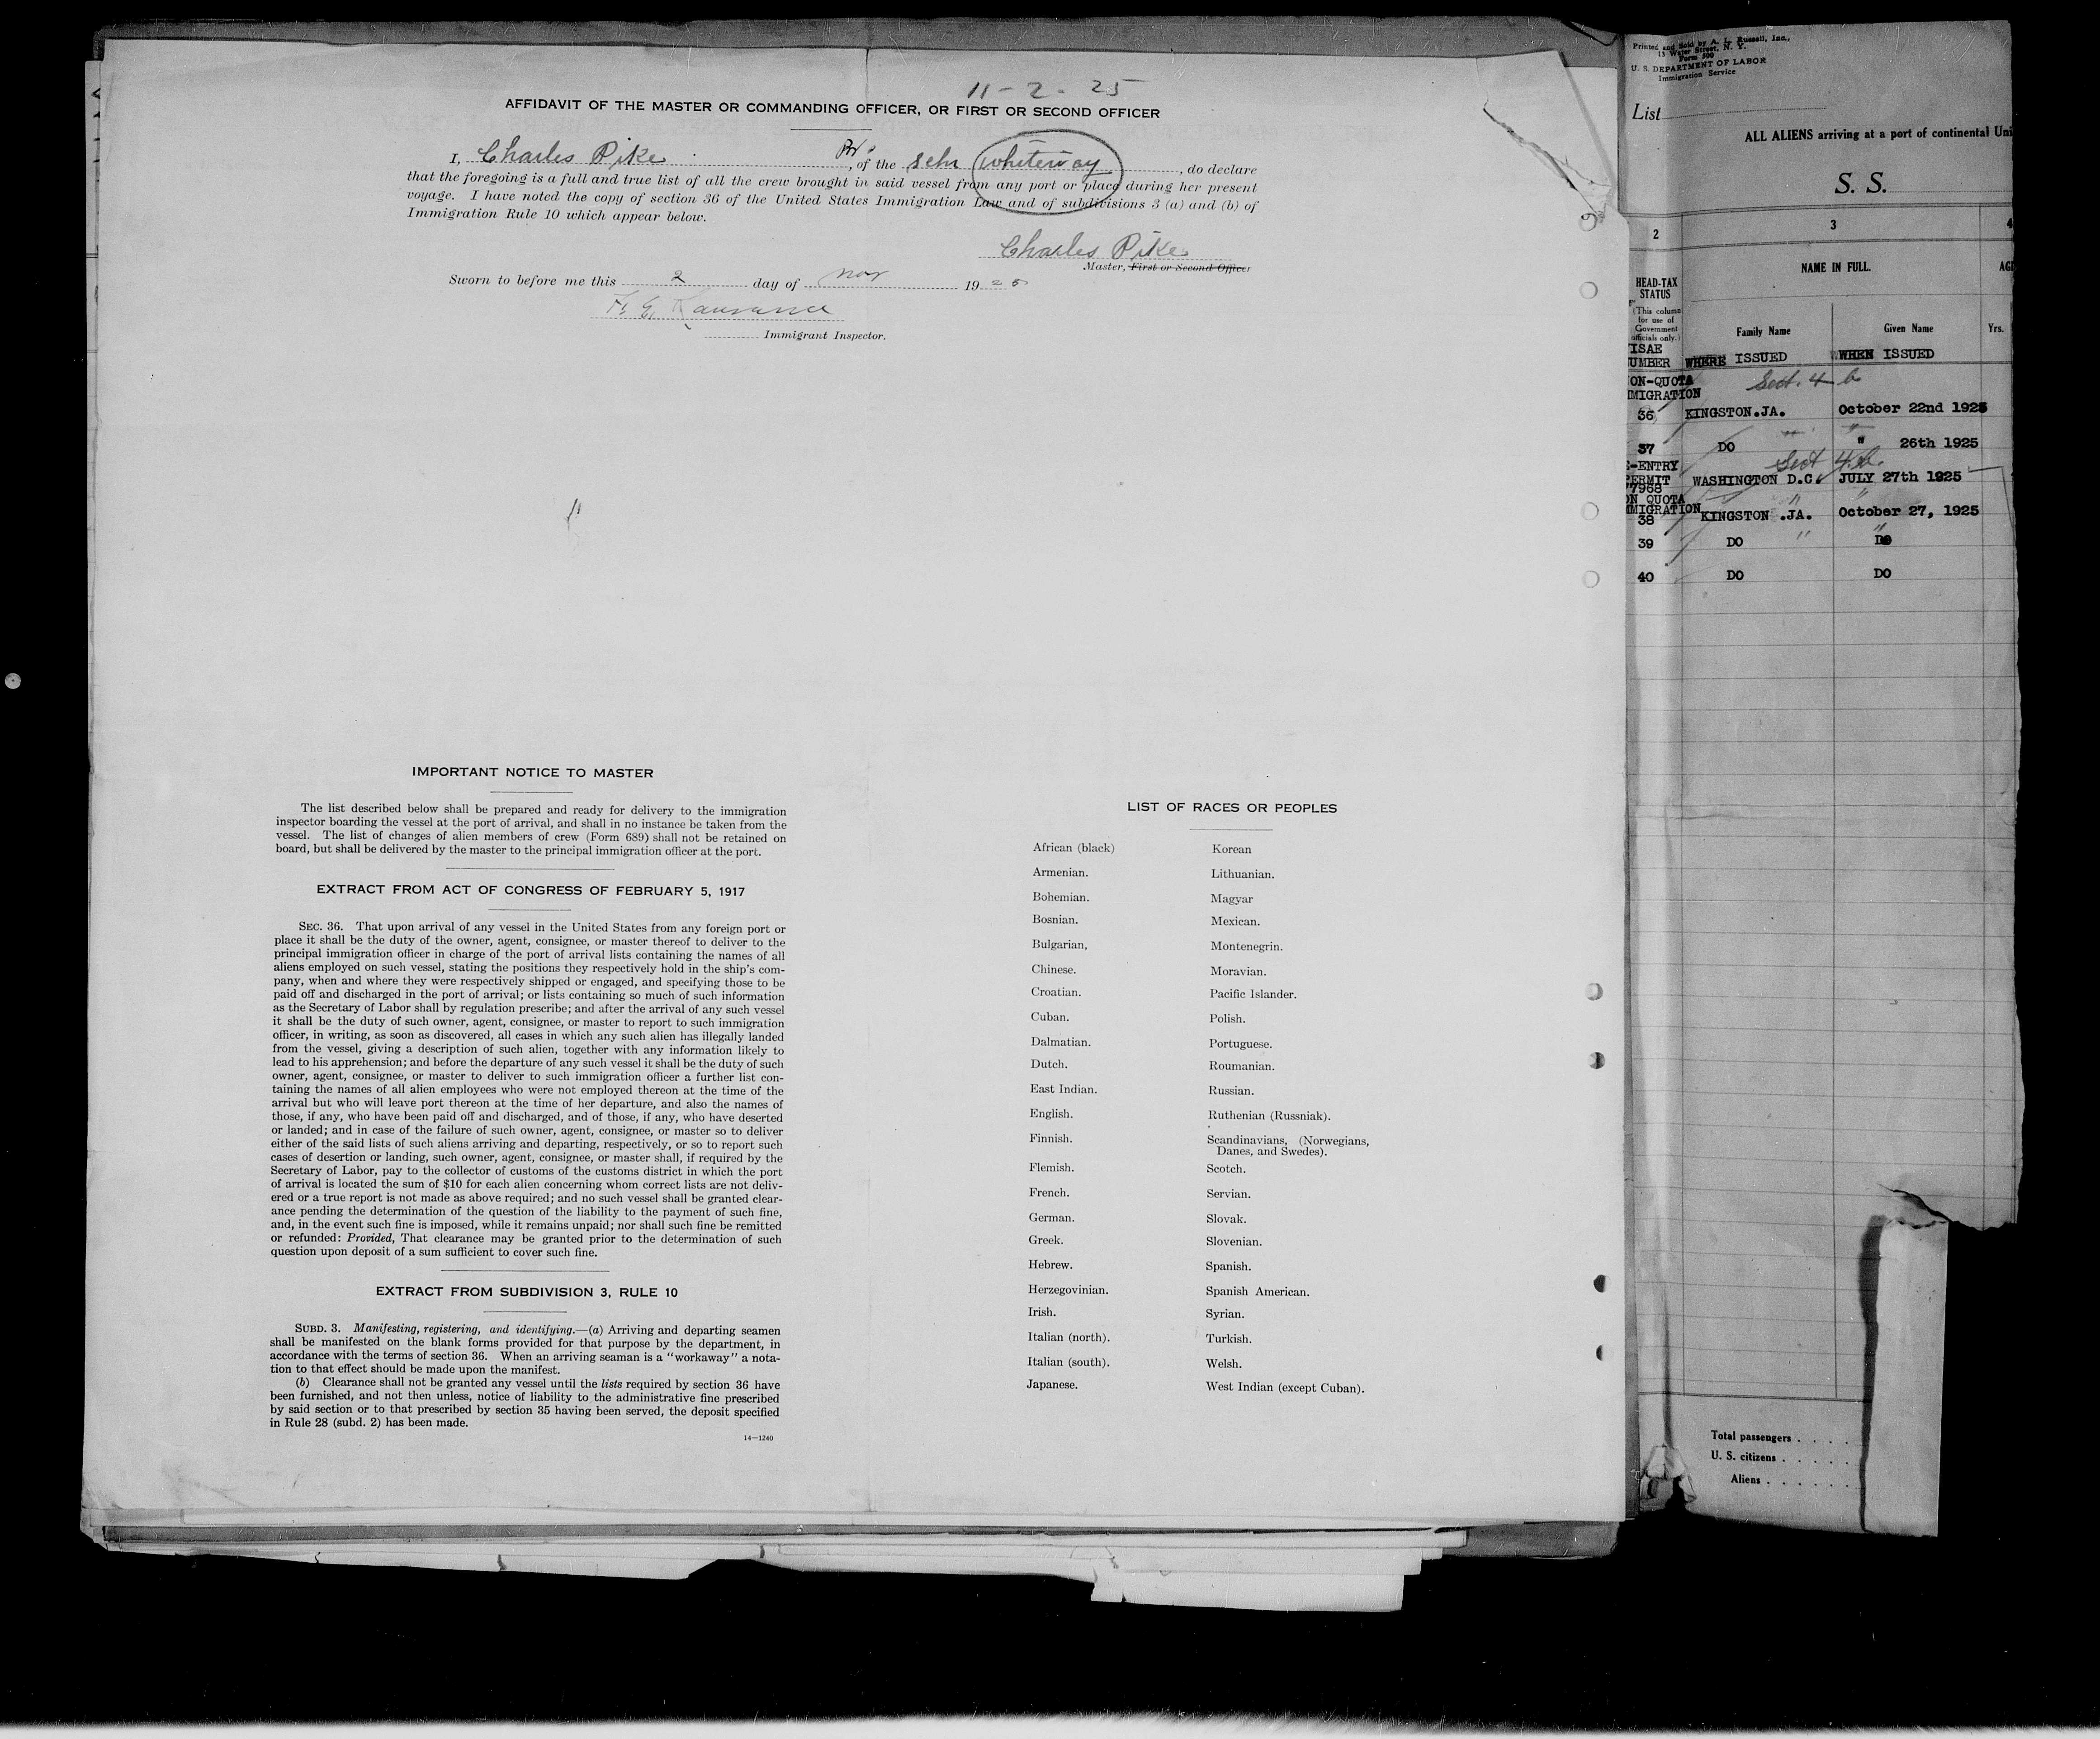 11-2-25
AFFIDAVIT OF THE MASTER OR COMMANDING OFFICER, OR FIRST OR SECOND OFFICER
I, Charles Pike, Br. of the schr Whiteway, do declare
that the foregoing is a full and true list of all the crew brought in said vessel from any port or place during her present
voyage. I have noted the copy of section 36 of the United States Immigration Law and of subdivisions 3 (a) and (b) of
Immigration Rule 10 which appear below.
Charles Pike
Master, First or Second Officer
Sworn to before me this 2 day of Nov 1925
F. E.
Immigrant Inspector.
IMPORTANT NOTICE TO MASTER
The list described below shall be prepared and ready for delivery to the immigration
inspector boarding the vessel at the port of arrival, and shall in no instance be taken from the
vessel. The list of changes of alien members of crew (Form 689) shall not be retained on
board, but shall be delivered by the master to the principal immigration officer at the port.
EXTRACT FROM ACT OF CONGRESS OF FEBRUARY 5, 1917
SEC. 36. That upon arrival of any vessel in the United States from any foreign port or
place it shall be the duty of the owner, agent, consignee, or master thereof to deliver to the
principal immigration officer in charge of the port of arrival lists containing the names of all
aliens employed on such vessel, stating the positions they respectively hold in the ship's com-
pany, when and where they were respectively shipped or engaged, and specifying those to be
paid off and discharged in the port of arrival; or lists containing so much of such information
as the Secretary of Labor shall by regulation prescribe; and after the arrival of any such vessel
it shall be the duty of such owner, agent, consignee, or master to report to such immigration
officer, in writing, as soon as discovered, all cases in which any such alien has illegally landed
from the vessel, giving a description of such alien, together with any information likely to
lead to his apprehension; and before the departure of any such vessel it shall be the duty of such
owner, agent, consignee, or master to deliver to such immigration officer a further list con-
taining the names of all alien employees who were not employed thereon at the time of the
arrival but who will leave port thereon at the time of her departure, and also the names of
those, if any, who have been paid off and discharged, and of those, if any, who have deserted
or landed; and in case of the failure of such owner, agent, consignee, or master so to deliver
either of the said lists of such aliens arriving and departing, respectively, or so to report such
cases of desertion or landing, such owner, agent, consignee, or master shall, if required by the
Secretary of Labor, pay to the collector of customs of the customs district in which the port
of arrival is located the sum of $10 for each alien concerning whom correct lists are not deliv-
ered or a true report is not made as above required; and no such vessel shall be granted clear-
ance pending the determination of the question of the liability to the payment of such fine,
and, in the event such fine is imposed, while it remains unpaid; nor shall such fine be remitted
or refunded: Provided, That clearance may be granted prior to the determination of such
question upon deposit of a sum sufficient to cover such fine.
EXTRACT FROM SUBDIVISION 3, RULE 10
SUBD. 3. Manifesting, registering, and identifying.—(a) Arriving and departing seamen
shall be manifested on the blank forms provided for that purpose by the department, in
accordance with the terms of section 36. When an arriving seaman is a "workaway" a nota-
tion to that effect should be made upon the manifest.
(b) Clearance shall not be granted any vessel until the lists required by section 36 have
been furnished, and not then unless, notice of liability to the administrative fine prescribed
by said section or to that prescribed by section 35 having been served, the deposit specified
in Rule 28 (subd. 2) has been made.
14—1240
LIST OF RACES OR PEOPLES
African (black) Korean
Armenian. Lithuanian.
Bohemian. Magyar
Bosnian. Mexican.
Bulgarian, Montenegrin.
Chinese. Moravian.
Croatian. Pacific Islander.
Cuban. Polish.
Dalmatian. Portuguese.
Dutch. Roumanian.
East Indian. Russian.
English. Ruthenian (Russniak).
Finnish. Scandinavians, (Norwegians,
Danes, and Swedes).
Flemish. Scotch.
French. Servian.
German. Slovak.
Greek. Slovenian.
Hebrew. Spanish.
Herzegovinian. Spanish American.
Irish. Syrian.
Italian (north). Turkish.
Italian (south). Welsh.
Japanese. West Indian (except Cuban).
Printed and Sold by A. L. Russell, Inc.,
15 Water Street, N. Y.
Form 500
U. S. DEPARTMENT OF LABOR
Immigration Service
List
ALL ALIENS arriving at a port of continental Uni
S. S.
2 3 4
HEAD-TAX
STATUS
(This column
for use of
Government
officials only.)
NAME IN FULL. AGE
Family Name Given Name Yrs.
ISAE
UMBER WHERE ISSUED WHEN ISSUED
ON-QUOTA Sect. 4 b
MIGRATION
36 KINGSTON.JA. October 22nd 1925
37 DO " " 26th 1925
-ENTRY Sect 4.b.
ERMIT WASHINGTON D.C. JULY 27th 1925
7968
ON QUOTA " "
MMIGRATION
38 KINGSTON .JA. October 27, 1925
39 DO " DO "
40 DO DO
Total passengers . . . .
U. S. citizens . . . . .
Aliens . . . . . .